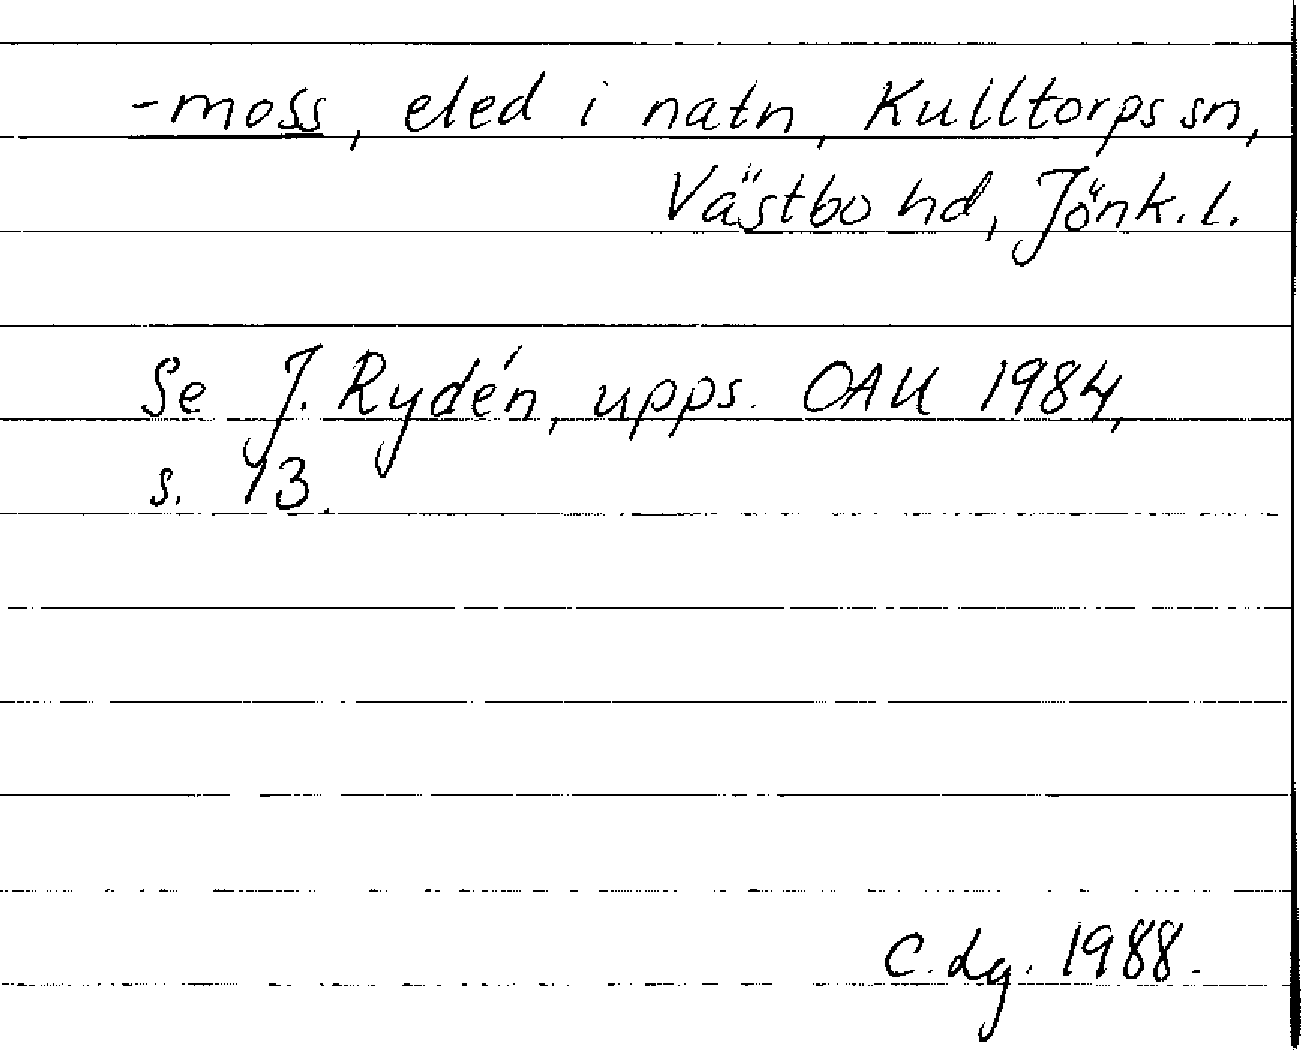 -moss, eled i natn, Kulltorps sn,
Västbo hd, Jönk. l.
Se J. Rydén, upps. OAU 1984,
s. 13.
C. dg. 1988.